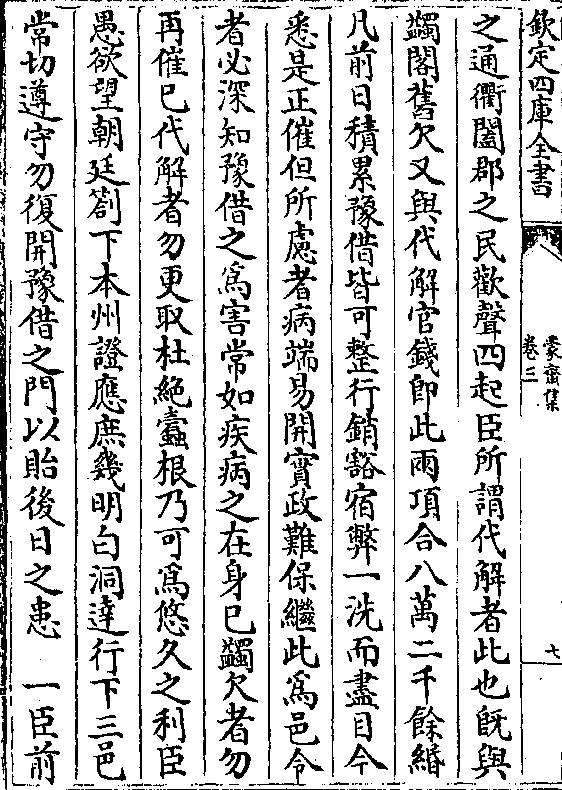 欽定四庫全書
蒙齋集
卷三
七
之通衢闔郡之民歡聲四起臣所謂代解者此也既與
蠲閣舊欠又與代解官錢即此兩項合八萬二千餘緡
凡前日積累豫借皆可整行銷豁宿弊一洗而盡目今
悉是正催但所慮者病端易開實政難保繼此為邑令
者必深知豫借之為害常如疾病之在身已蠲欠者勿
再催已代解者勿更取杜絶蠧根乃可為悠久之利臣
愚欲望朝廷劄下本州證應庶幾明白洞達行下三邑
常切遵守勿復開豫借之門以貽後日之患　一臣前